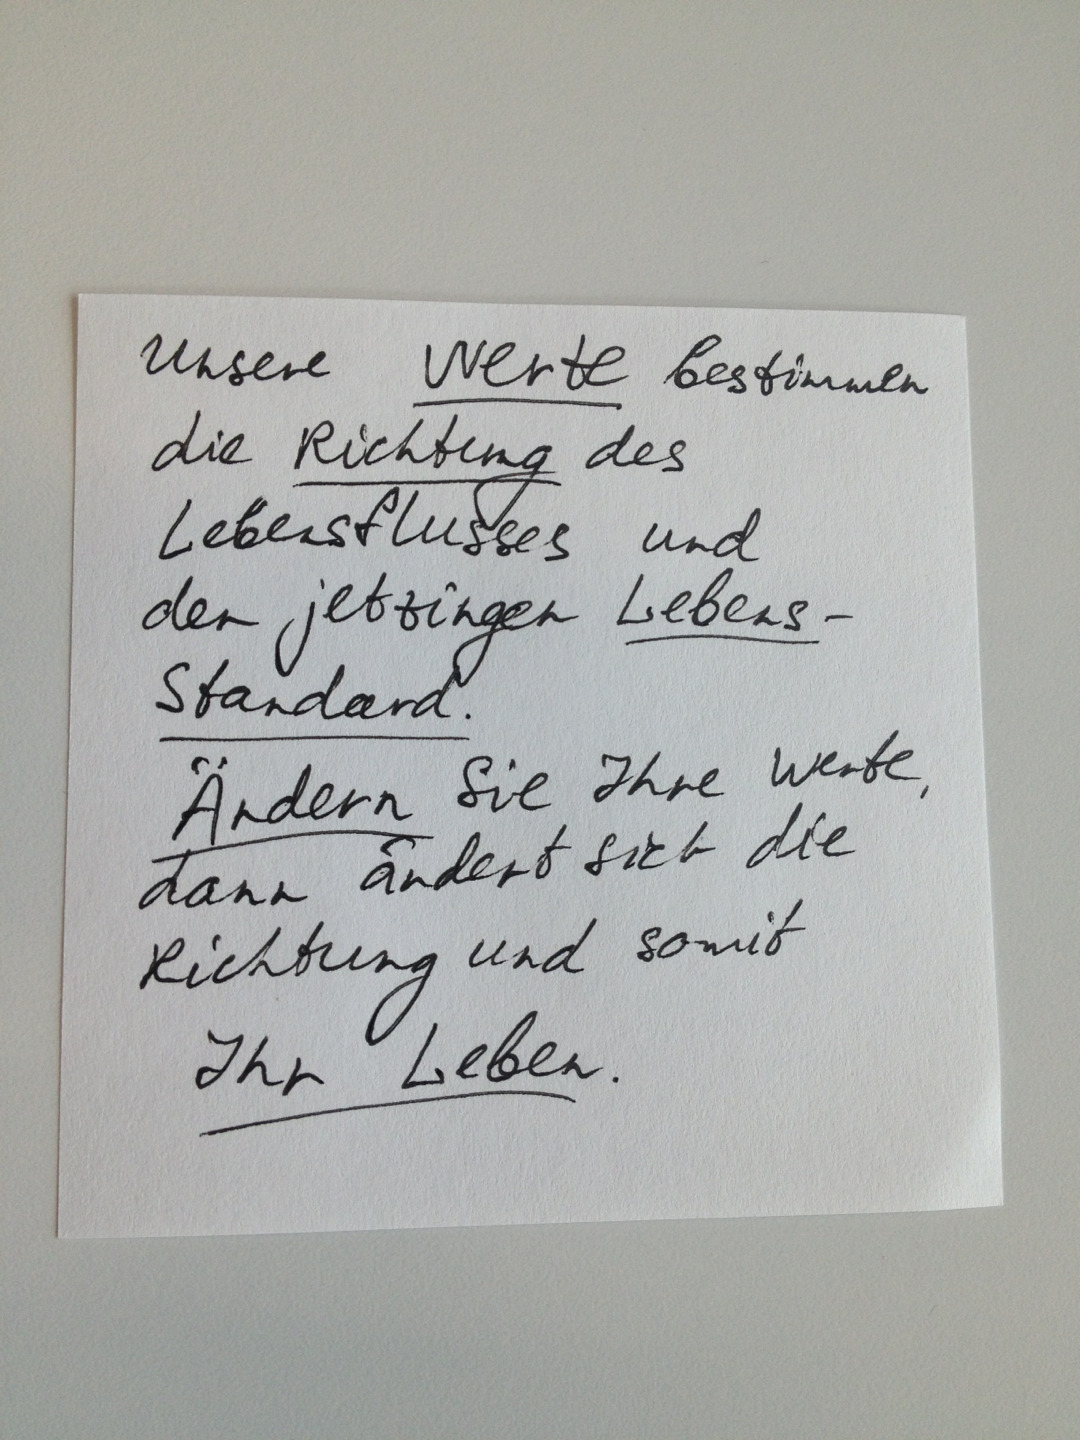 Unsere Werte bestimmen
die Richtung des
Lebensflusses und
den jetzingen Lebens-
Standard.
Ändern Sie Ihre Werte,
dann ändert sich die
Richtung und somit
Ihr Leben.